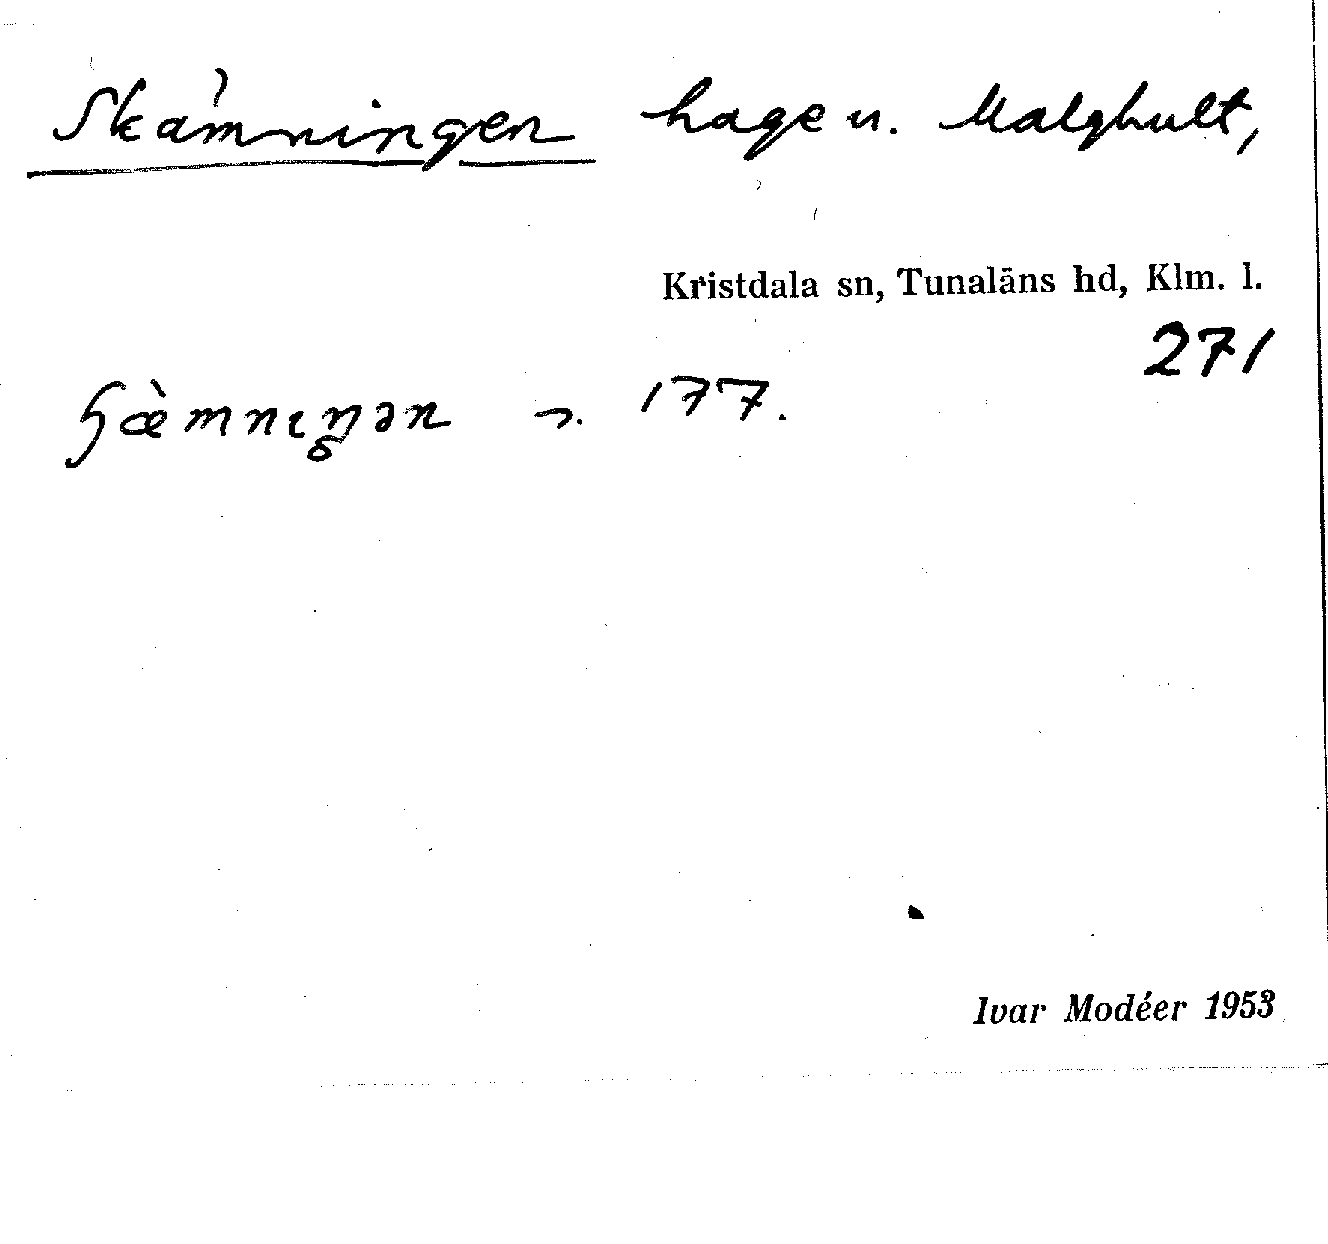 Skämningen hage u. Malghult,
Kristdala sn, Tunaläns hd, Klm. l.
271
ɧæ̀mnɩŋən ɔ. 177.
Ivar Modéer 1953